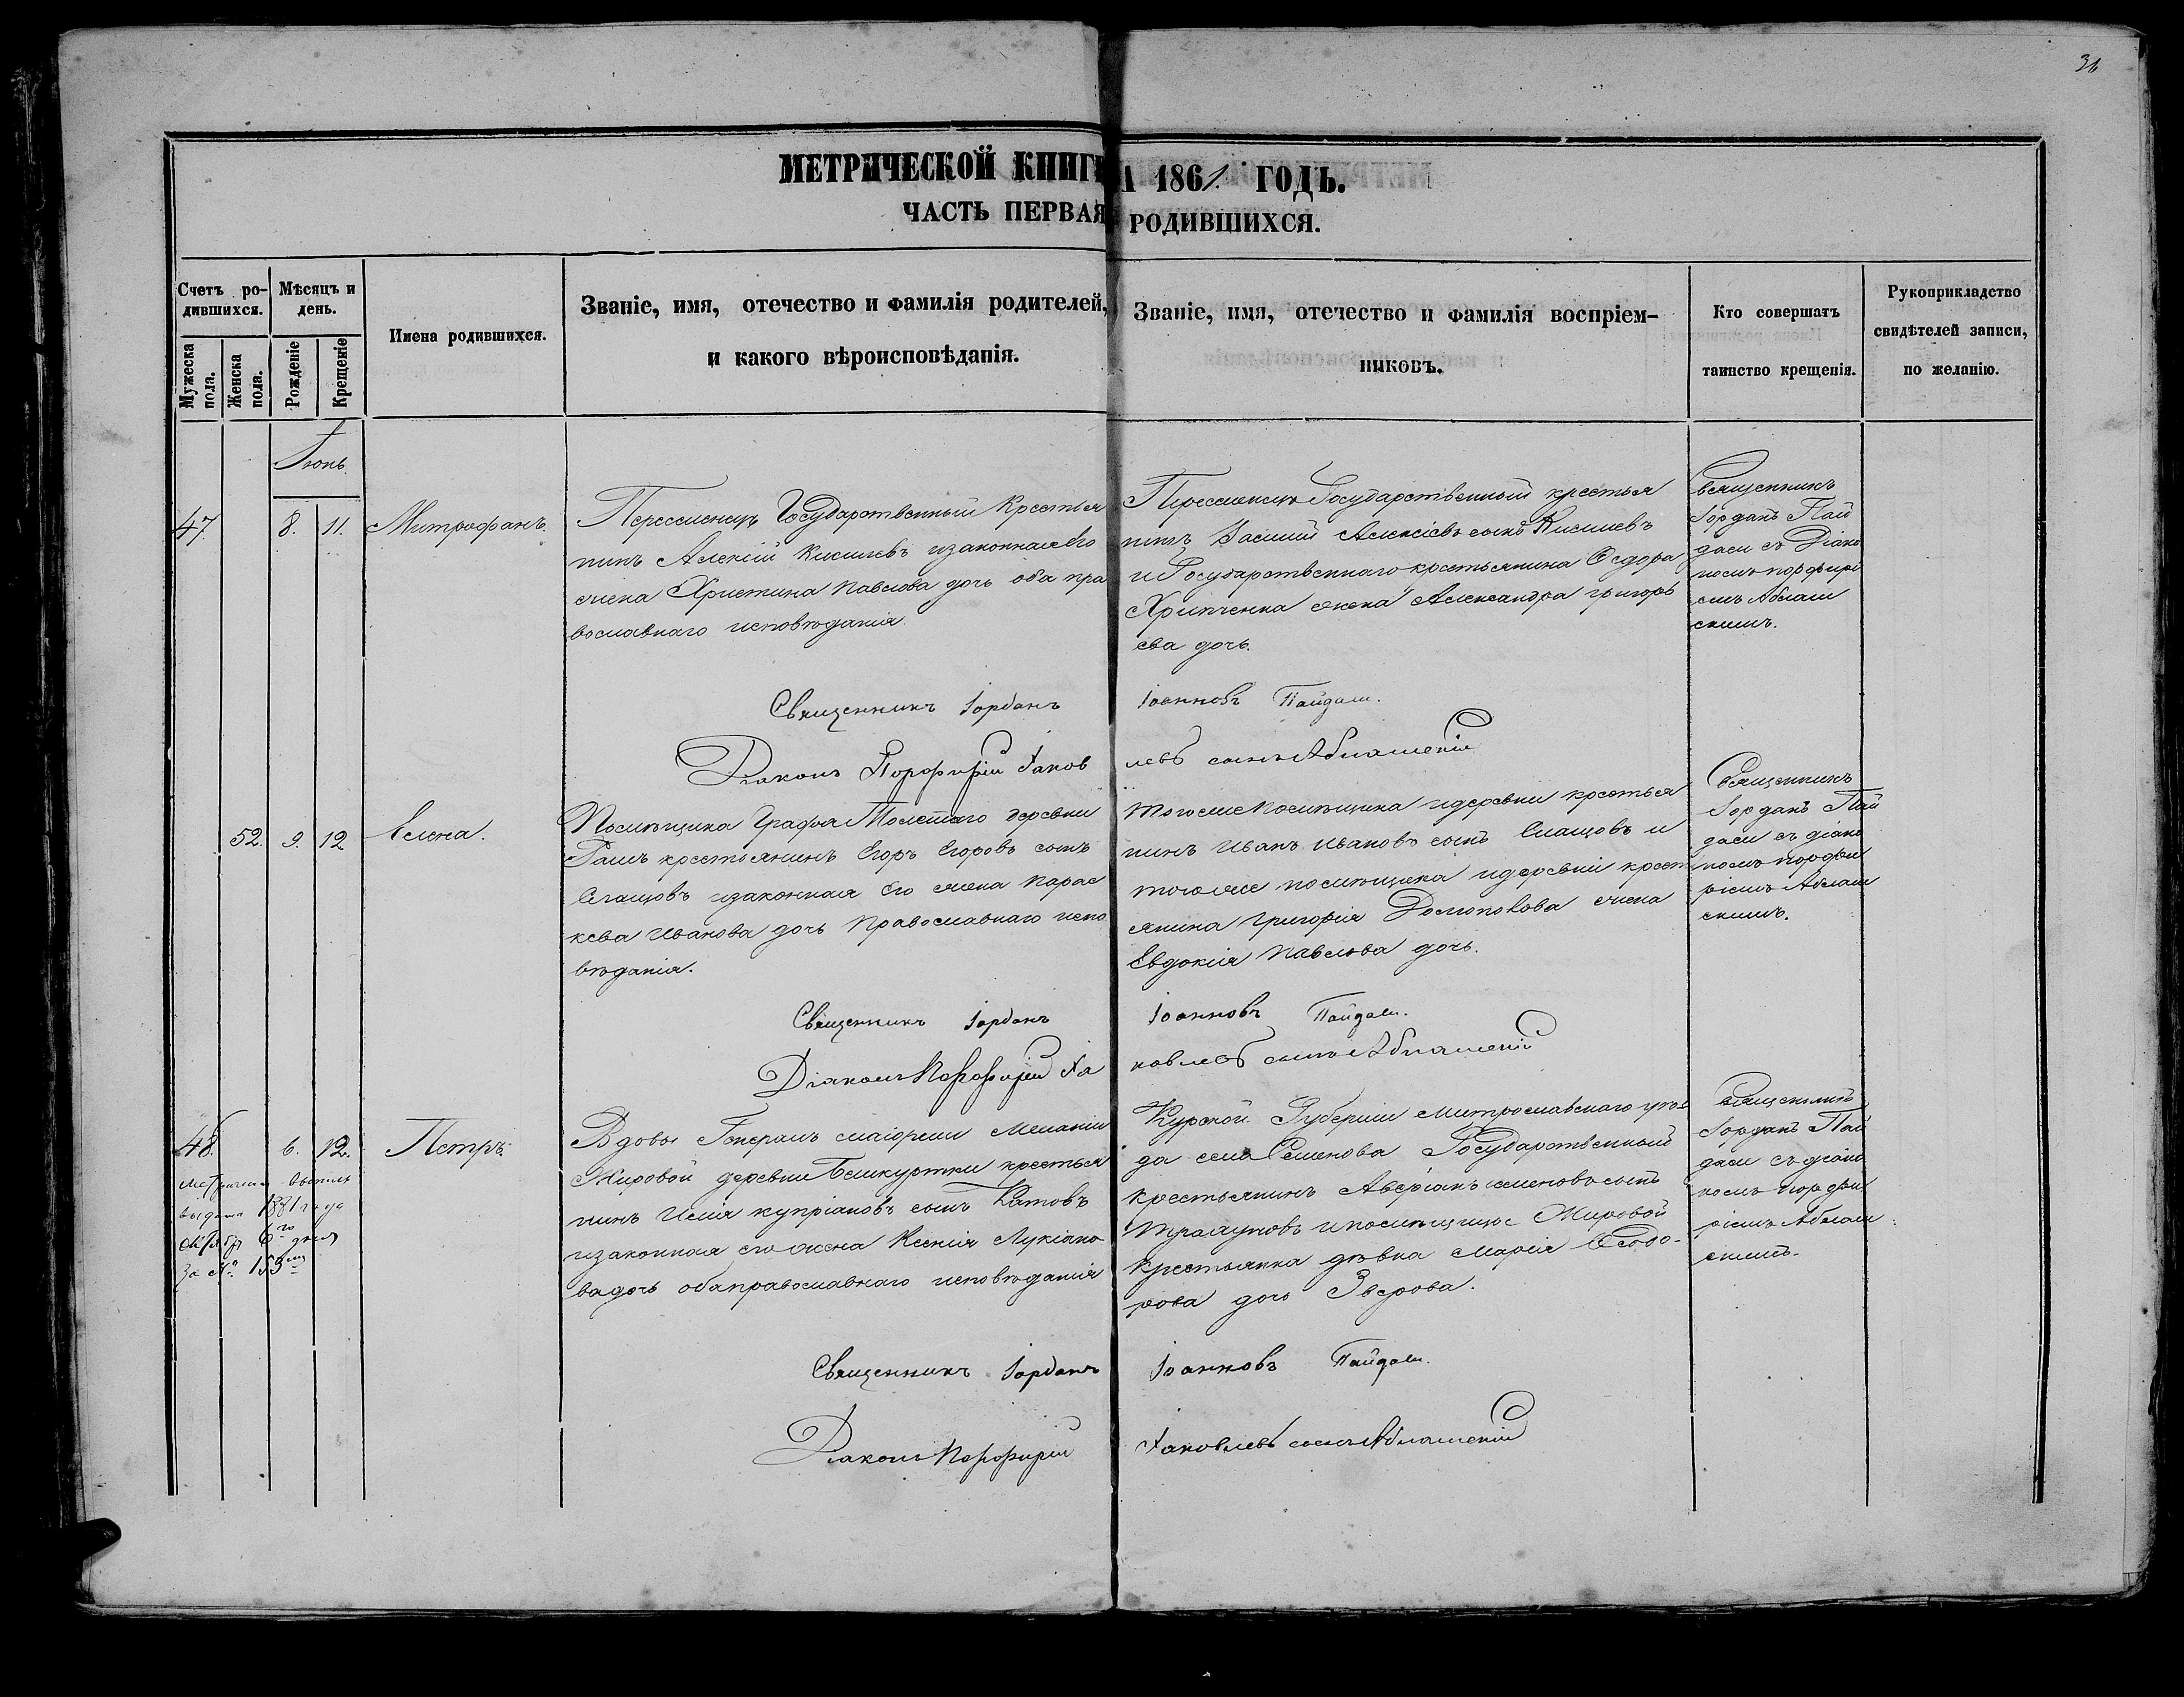 31
МЕТРИЧЕСКОЙ КНИГИ
А 1861. ГОДЪ.
ЧАСТЬ ПЕРВАЯ
РОДИВШИХСЯ.
Счетъ ро-
дившихся.
Мужеска
пола.
Женска
пола.
Мѣсяцъ и
день.
Рожденіе
Крещеніе
Имена родившихся.
Званіе, имя, отечество и фамилія родителей,
и какого вѣроисповѣданія.
Званіе, имя, отечество и фамилія воспріем-
никовъ.
Кто совершатъ
таинство крещенія.
Рукоприкладство
свидѣтелей записи,
по желанію.
Іюнь.
47.
8. 11.
Митрофанъ.
Переселенецъ Государственный Крестья
нинъ Алексій Киселевъ изаконнаяего
жена Христина Павлова дочь оба пра
вославнаго исповѣданія
Переселенецъ Государственный крестья
нинъ Василий Алексіевъ сынъ Киселевъ
и Государственнаго крестьянина Ѳедора
Хрипченка жена Александра григорь
ева дочь.
Священникъ
Іорданъ Пай
даси съ Діако
номъ порфирі
емъ Аблаш
скимъ.
Священникъ Іорданъ
Іоанновъ Пайдаси.
Діаконъ Порфирій Іаков
левъ сынъ Аблашскій
52.
9. 12
Елена.
Помѣщика Графа Толстаго деревни
крестьянинъ Егоръ Егоровъ сынъ
Слащовъ изаконная его жена Парас
кева Иванова дочь Православнаго испо
вѣданія.
Тогоже помѣщика идеревни крестья
нинъ Иванъ Ивановъ сынъ Слащовъ и
тогоже помѣщика идеревни крест
янина Григорія жена
Евдокія Павлова дочь.
Священникъ
Іорданъ Пай
даси съ діако
номъ порфи
ріемъ Аблаш
скимъ.
Священникъ Іорданъ
Іоанновъ Пайдаси.
Діаконъ Порфирій Іа
ковлевъ сынъ Аблашскій
48.
6. 12.
Петръ.
выдана 1881 года
6го дня
За № 153мъ
Вдовы Генералъ маіорши Меланіи
Жировой деревни Бешкуртки крестья
нинъ Илія купріановъ сынъ Катовъ
изаконная его жена Ксенія Лукіано
вадочь обаправославнаго исповѣданія
Курской Губерніи Митрославскаго уѣз
да села Семенова Государственный
крестьянинъ Аверіанъ семеновъ сынъ
ипомѣщицы Жировой
Крестьянка дѣвка Марія Ѳедо-
рова дочь Зверова.
Священникъ
Іорданъ Пай
даси съ діако
номъ порфи
ріемъ Аблаш
скимъ.
Священникъ Іорданъ
Іоанновъ Пайдаси.
Діаконъ Порфирій
Іаковлевъ сынъ Аблашскій